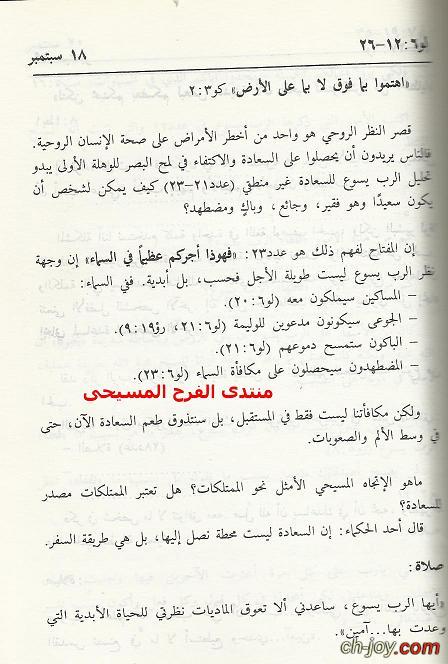 لو٦:١٢-٢٦
١٨ سبتمبر
«اهتموا بما فوق لا بما على الأرض» كو٣:٢
قصر النظر الروحي هو واحد من أخطر الأمراض على صحة الإنسان الروحية.
فالناس يريدون أن يحصلوا على السعادة والاكتفاء في لمح البصر للوهلة الأولى يبدو
تحليل الرب يسوع للسعادة غير منطقي (عدد٢١-٢٣) كيف يمكن لشخص أن
يكون سعيدًا وهو فقير، وجائع، وباكٍ ومضطهد؟
إن المفتاح لفهم ذلك هو عدد٢٣: «فهوذا أجركم عظيماً في السماء» إن وجهة
نظر الرب يسوع ليست طويلة الأجل فحسب، بل أبدية. ففي السماء:
– المساكين سيملكون معه (لو٦:٢٠).
– الجوعى سيكونون مدعوين للوليمة (لو٦:٢١، رؤ١٩:٩).
– الباكون ستمسح دموعهم (لو٦:٢١).
– المضطهدون سيحصلون على مكافأة السماء (لو٦:٢٣).
منتدى الفرح المسيحى
ولكن مكافأتنا ليست فقط في المستقبل، بل سنتذوق طعم السعادة الآن، حتى
في وسط الألم والصعوبات.
ماهو الإتجاه المسيحي الأمثل نحو الممتلكات؟ هل تعتبر الممتلكات مصدر
للسعادة؟
قال أحد الحكماء: إن السعادة ليست محطة نصل إليها، بل هي طريقة السفر.
صلاة:
«أيها الرب يسوع، ساعدني ألا تعوق الماديات نظرتي للحياة الأبدية التي
وعدت بها...آمين».
ch-joy.com